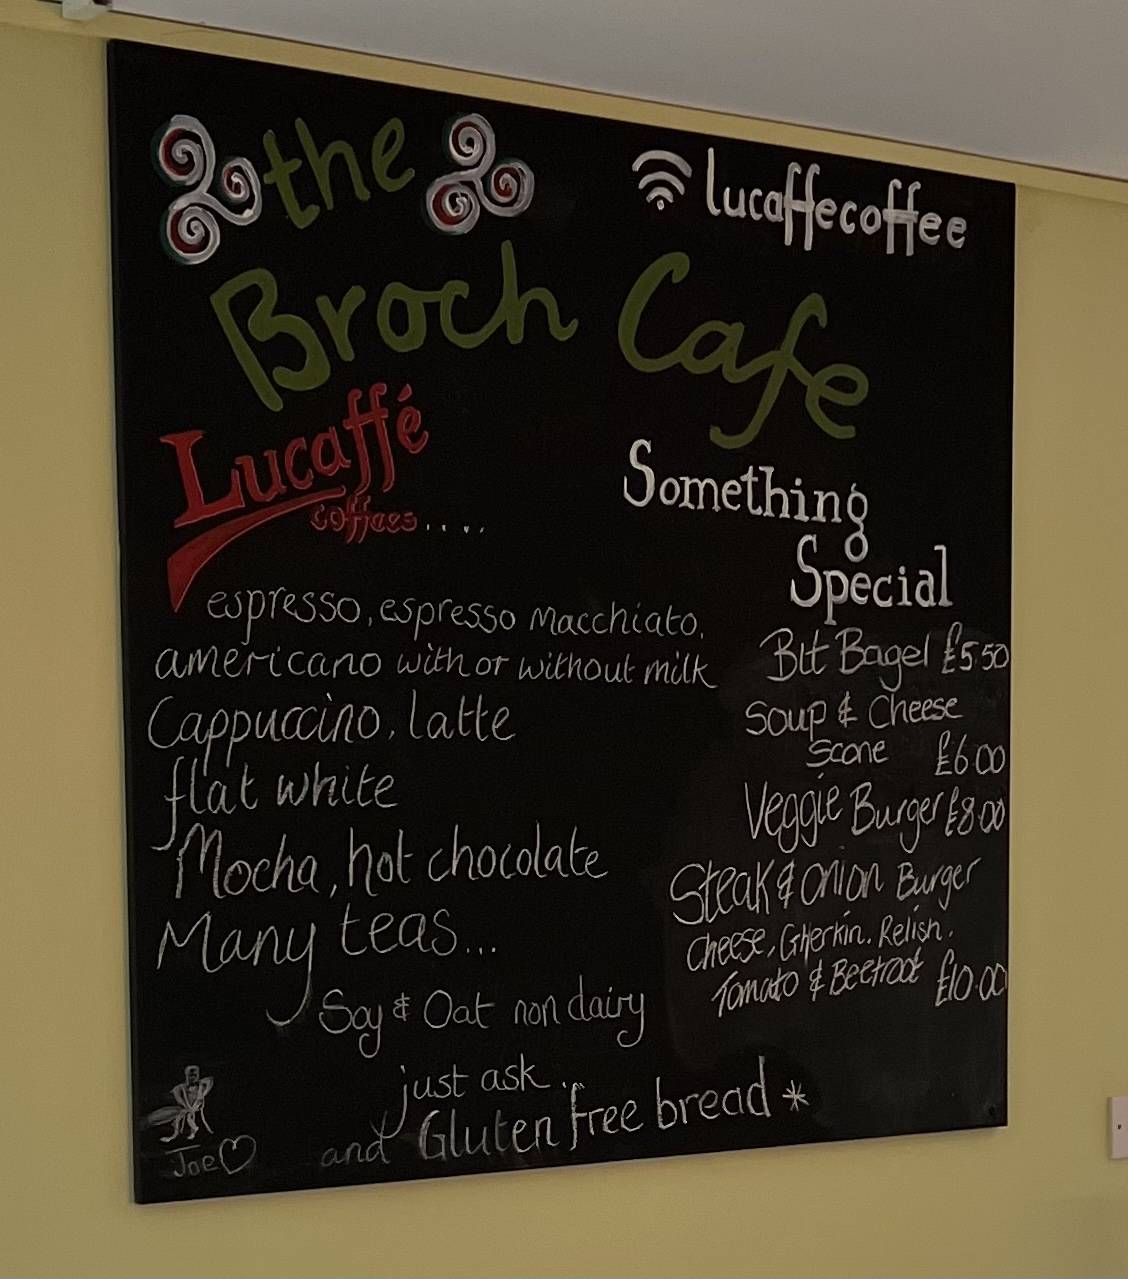 the
lucaffecoffee
Broch Cafe
Lucaffé
coffees.....
espresso, espresso macchiato.
americano with or without milk
Cappuccino, latte
flat white
Mocha, hot chocolate
Many teas...
Soy & Oat non dairy
just ask..
and Gluten free bread *
Joe
Something
Special
Blt Bagel £5.50
Soup & Cheese
Scone £6.00
Veggie Burger £8.00
Steak & onion Burger
Cheese, Gherkin, Relish.
Tomato & Beetroot £10.00